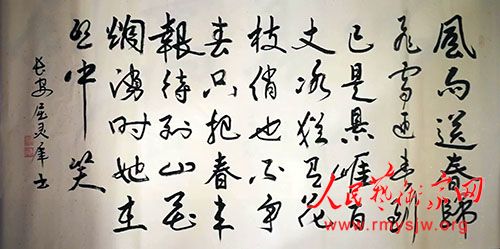 風雨送春歸
飛雪迎春到
已是悬崖百
丈冰犹有花
枝俏也不争
春只把春来
報待到山花
爛漫时她在
丛中笑
長安
人民艺术家网
www.rmysjw.org